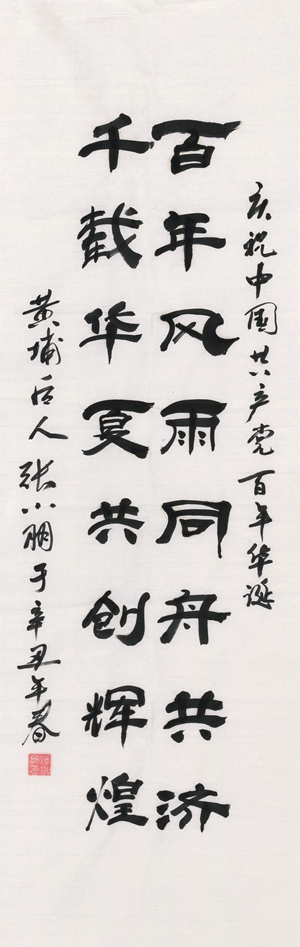 庆祝中国共产党百年华诞
百年风雨同舟共济
千载华夏共创辉煌
黄埔后人张小朋于辛丑年春